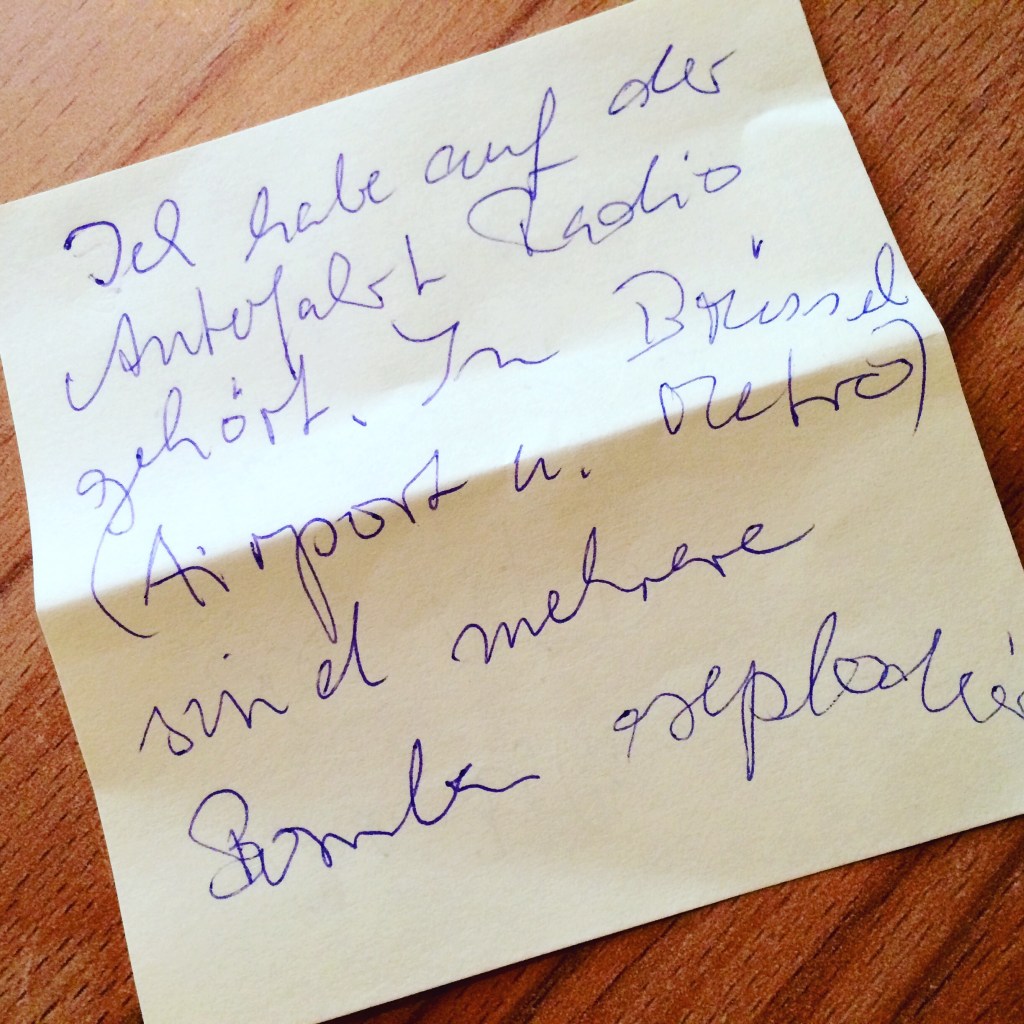 Ich habe auf der
Autofahrt Radio
gehört. In Brüssel
(Airport u. Metro)
sind mehrere
Bomben explodier